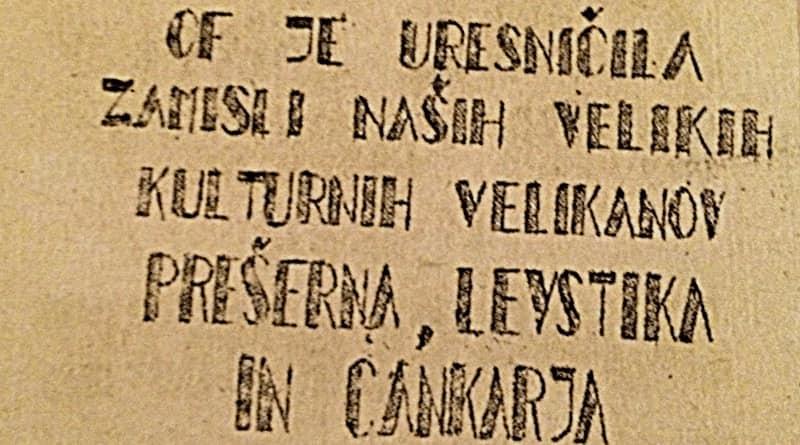 OF JE URESNIČILA
ZAMISLI NAŠIH VELIKIH
KULTURNIH VELIKANOV
PREŠERNA, LEVSTIKA
IN CANKARJA